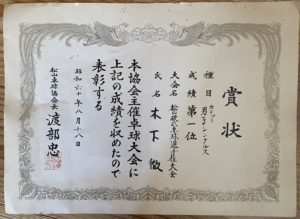 賞状
種目 男子シングルス
成績 第一位
大会名 松山 卓球選手権大会
氏名 木下 徹
本協会主催卓球大会に
上記の成績を収めたので
表彰する
昭和六十年八月十八日
松山卓球協会長 渡部 忠